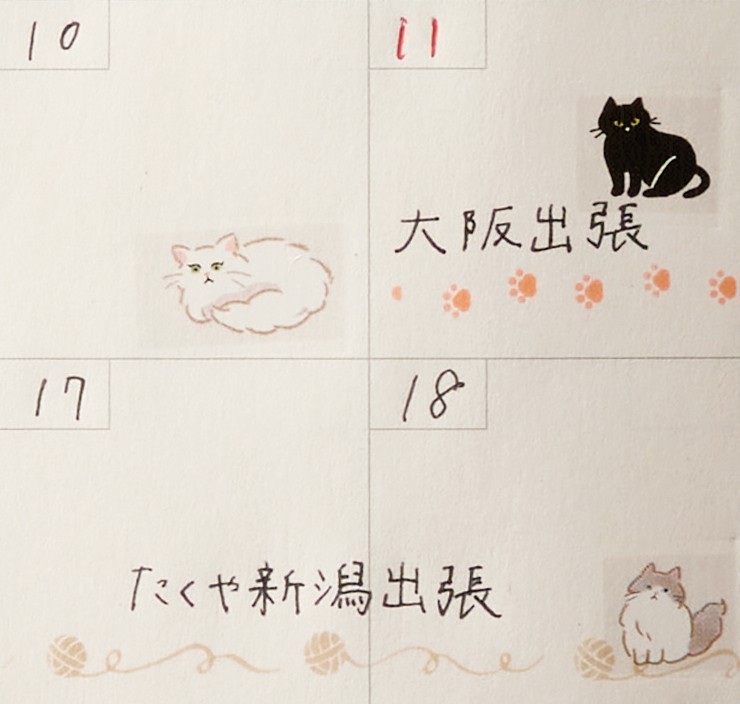 10
11
大阪出張
17
18
たくや新潟出張